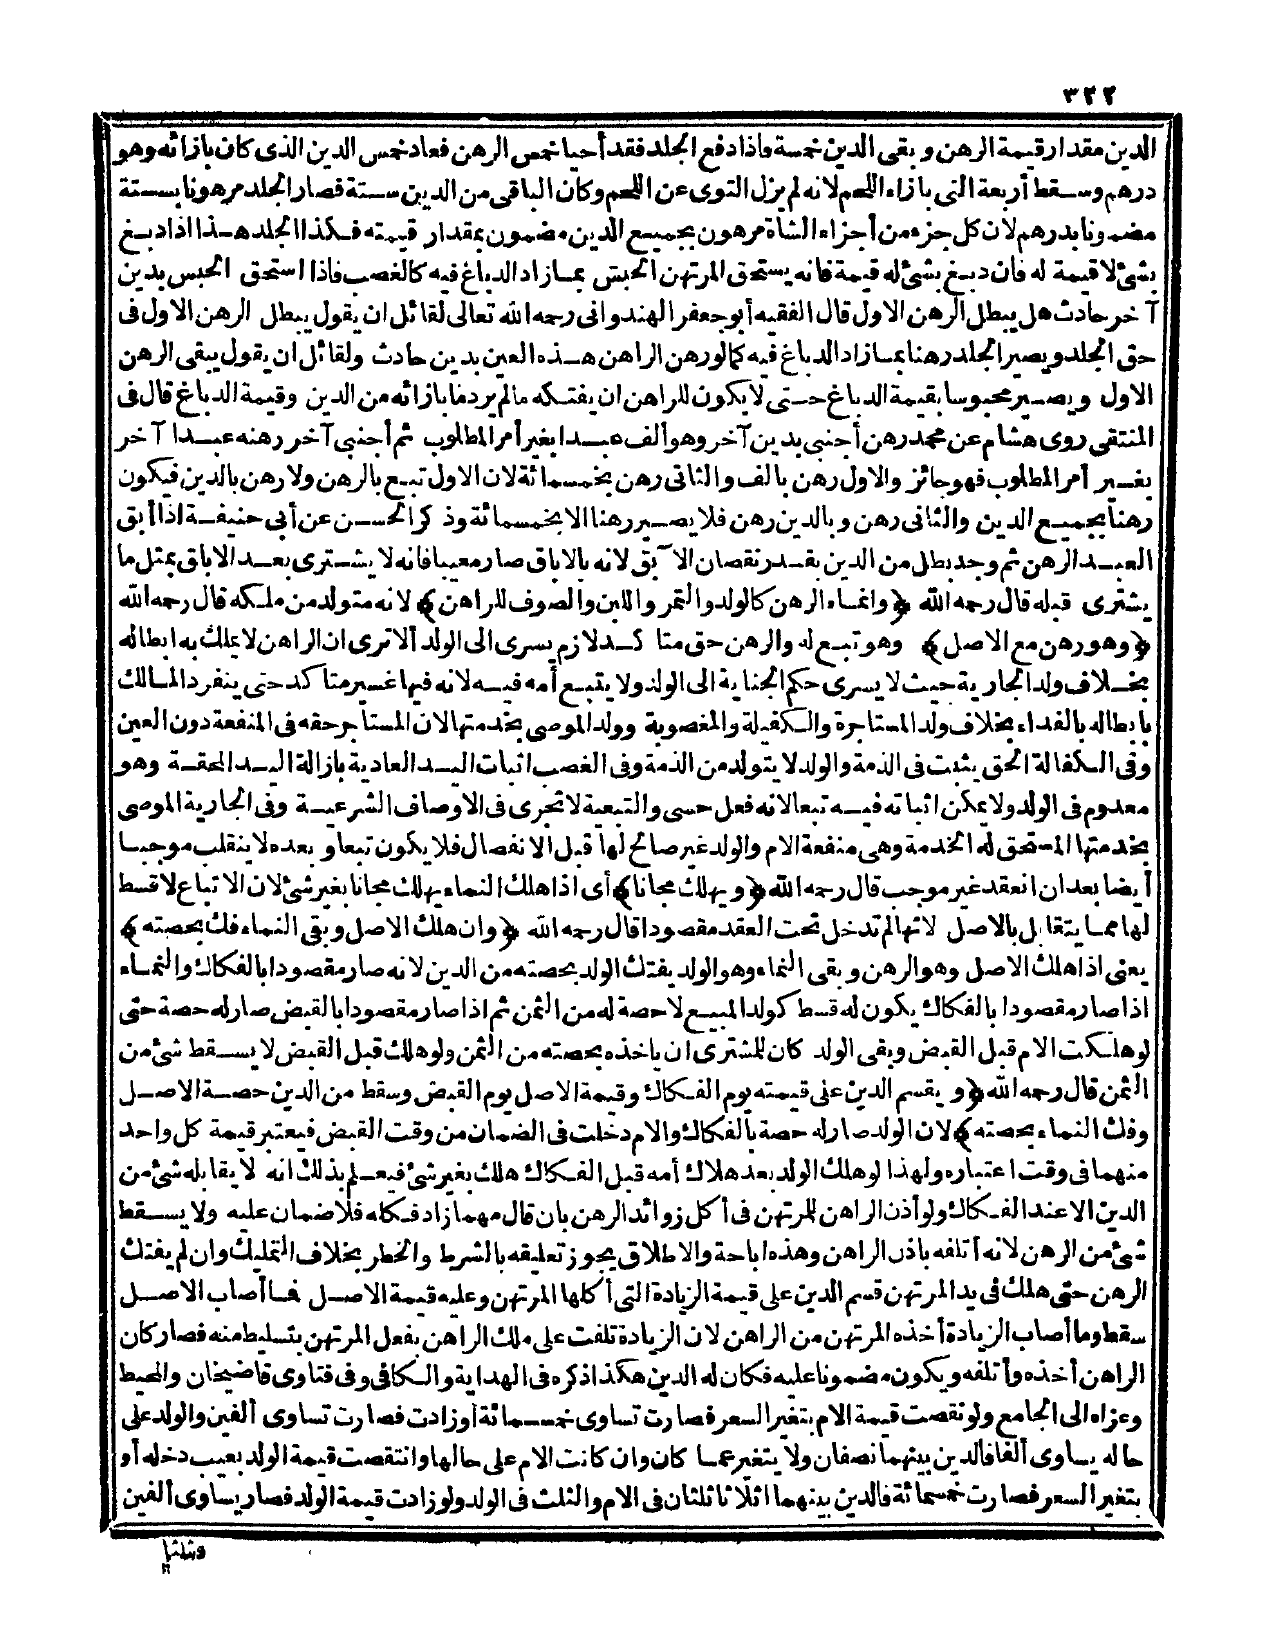 ٣٢٢
الدين مقدار قيمة الرهن وبقى الدين خمسة فاذا دفع الجلد فقد أحيا خمس الرهن فعاد خمس الدين الذى كان بازائه وهو
درهم وسقط أربعة التى بازاء اللحم لانه لم يزل التوى عن اللحم وكان الباقى من الدين ستة فصار الجلد مرهونا بستة
مضمونا بدرهم لان كل جزء من أجزاء الشاة مرهون بجميع الدين مضمون بمقدار قيمته فكذا الجلد هذا اذا دبغ
بشئ لا قيمة له فان دبغ بشئ له قيمة فانه يستحق المرتهن الحبس بما زاد الدباغ فيه كالغصب فاذا استحق الحبس بدين
آخر حادث هل يبطل الرهن الاول قال الفقيه أبو جعفر الهندوانى رحمه الله تعالى لقائل ان يقول يبطل الرهن الاول فى
حق الجلد ويصير الجلد رهنا بما زاد الدباغ فيه كما لو رهن الراهن هذه العين بدين حادث ولقائل ان يقول يبقى الرهن
الاول ويصير محبوسا بقيمة الدباغ حتى لا يكون للراهن ان يفتكه مالم يرد ما بازائه من الدين وقيمة الدباغ قال فى
المنتقى روى هشام عن محمد رهن أجنبى بدين آخر وهو ألف عبدا بغير أمر المطلوب ثم أجنبى آخر رهنه عبدا آخر
بغير أمر المطلوب فهو جائز والاول رهن بالف والثانى رهن بخمسمائة لان الاول تبع بالرهن ولا رهن بالدين فيكون
رهنا بجميع الدين والثانى رهن وبالدين رهن فلا يصير رهنا الا بخمسمائة وذكر الحسن عن أبى حنيفة اذا أبق
العبد الرهن ثم وجد بطل من الدين بقدر نقصان الآبق لانه بالاباق صار معيبا فانه لا يشترى بعد الاباق بمثل ما
يشترى قبله قال رحمه الله ﴿وانماء الرهن كالولد والثمر واللبن والصوف للراهن﴾ لانه متولد من ملكه قال رحمه الله
﴿وهو رهن مع الاصل﴾ وهو تبع له والرهن حق متأكد لازم يسرى الى الولد ألا ترى ان الراهن لا يملك به ابطاله
بخلاف ولد الجارية حيث لا يسرى حكم الجناية الى الولد ولا يتبع أمه فيه لانه فيها غير متأكد حتى ينفرد المالك
بابطاله بالفداء بخلاف ولد المستاجرة والكفيلة والمغصوبة وولد الموصى بخدمتها لان المستاجر حقه فى المنفعة دون العين
وفى الكفالة الحق يثبت فى الذمة والولد لا يتولد من الذمة وفى الغصب اثبات اليد العادية بازالة اليد المحقة وهو
معدوم فى الولد ولا يمكن اثباته فيه تبعا لانه فعل حسى والتبعية لا تجرى فى الاوصاف الشرعية وفى الجارية الموصى
بخدمتها المستحق له الخدمة وهى منفعة الام والولد غير صالح لها قبل الانفصال فلا يكون تبعا وبعده لا ينقلب موجبا
أيضا بعد ان انعقد غير موجب قال رحمه الله ﴿ويهلك مجانا﴾ أى اذا هلك النماء يهلك مجانا بغير شئ لان الاتباع لا قسط
لها مما يتقابل بالاصل لانها لم تدخل تحت العقد مقصودا قال رحمه الله ﴿وان هلك الاصل وبقى النماء فك بحصته﴾
يعنى اذا هلك الاصل وهو الرهن وبقى النماء وهو الولد يفتك الولد بحصته من الدين لانه صار مقصودا بالفكاك والنماء
اذا صار مقصودا بالفكاك يكون له قسط كولد المبيع لا حصة له من الثمن ثم اذا صار مقصودا بالقبض صار له حصة حتى
لو هلكت الام قبل القبض وبقى الولد كان للمشترى ان ياخذه بحصته من الثمن ولو هلك قبل القبض لا يسقط شئ من
الثمن قال رحمه الله ﴿ويقسم الدين على قيمته يوم الفكاك وقيمة الاصل يوم القبض وسقط من الدين حصة الاصل
وفك النماء بحصته﴾ لان الولد صار له حصة بالفكاك والام دخلت فى الضمان من وقت القبض فيعتبر قيمة كل واحد
منهما فى وقت اعتباره ولهذا لو هلك الولد بعد هلاك أمه قبل الفكاك هلك بغير شئ فيعلم بذلك انه لا يقابله شئ من
الدين الا عند الفكاك ولو أذن الراهن للمرتهن فى أكل زوائد الرهن بان قال مهما زاد فكله فلا ضمان عليه ولا يسقط
شئ من الرهن لانه أتلفه باذن الراهن وهذه اباحة والاطلاق يجوز تعليقه بالشرط والخطر بخلاف التمليك وان لم يفتك
الرهن حتى هلك فى يد المرتهن قسم الدين على قيمة الزيادة التى أكلها المرتهن وعليه قيمة الاصل فما أصاب الاصل
سقط وما أصاب الزيادة أخذه المرتهن من الراهن لان الزيادة تلفت على ملك الراهن بفعل المرتهن بتسليط منه فصار كان
الراهن أخذه وأتلفه ويكون مضمونا عليه فكان له الدين هكذا ذكره فى الهداية والكافى وفى فتاوى قاضيخان والمحيط
وعزاه الى الجامع ولو نقصت قيمة الام بتغير السعر فصارت تساوى خمسمائة أو زادت فصارت تساوى ألفين والولد على
حاله يساوى ألفا فالدين بينهما نصفان ولا يتغير عما كان وان كانت الام على حالها وانتقصت قيمة الولد بعيب دخله أو
بتغير السعر فصارت خمسمائة فالدين بينهما اثلاثا ثلثان فى الام والثلث فى الولد ولو زادت قيمة الولد فصار يساوى ألفين
وثلثا